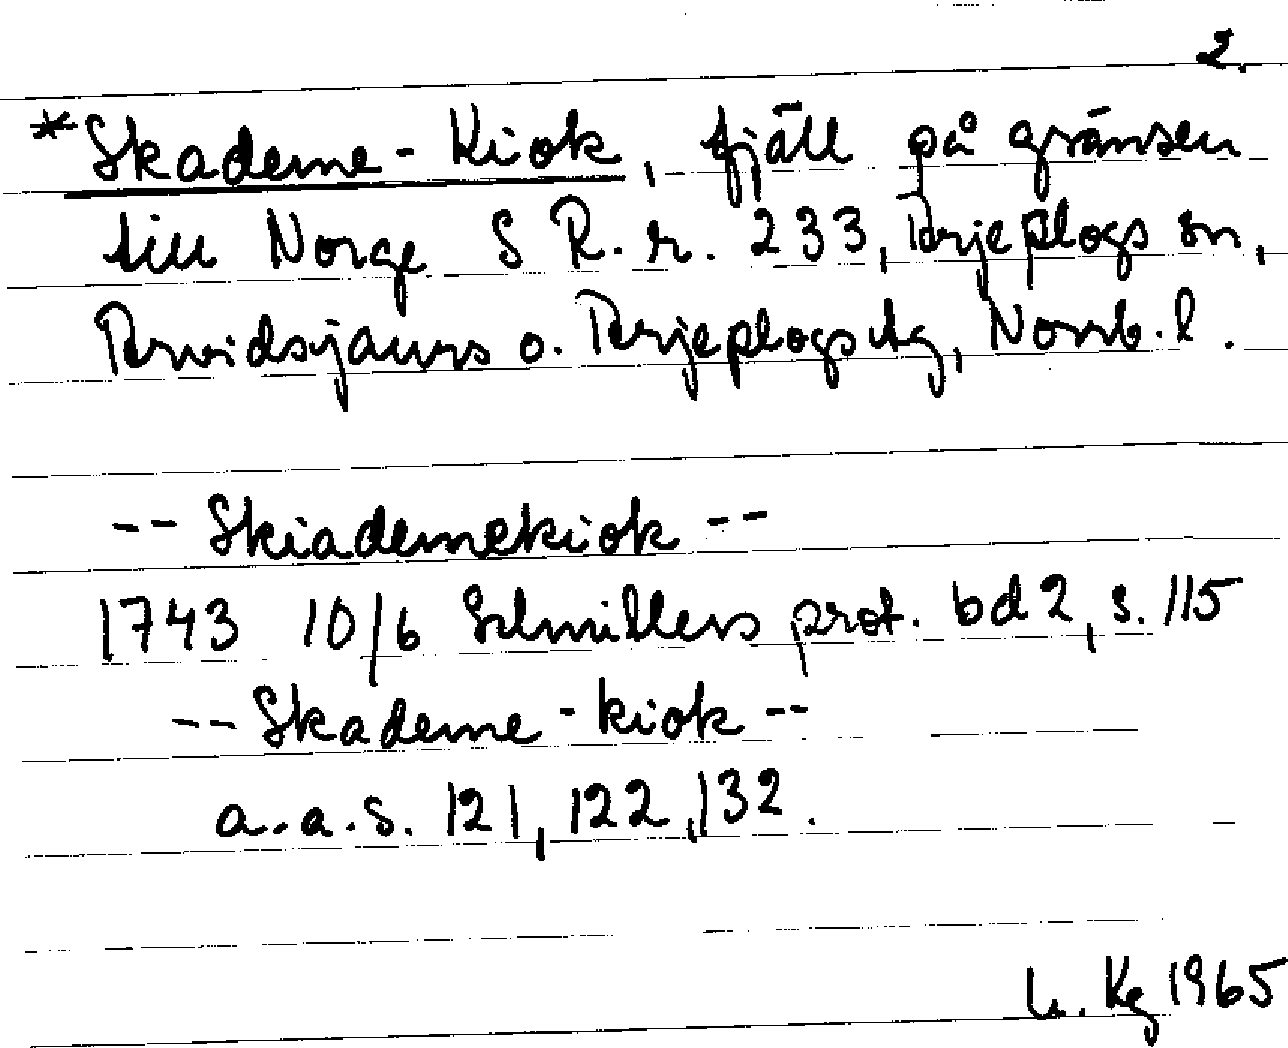 2.
*Skademe-Kiok, fjäll på gränsen
till Norge S R.r. 233, Arjeplogs sn,
Arvidsjaurs o. Arjeplogs tg, Norrb. l.
-- Skiademekiok --
1743 10/6 Schnitlers prot. bd 2, s. 115
-- Skademe-kiok --
a.a.s. 121, 122, 132.
Kg 1965